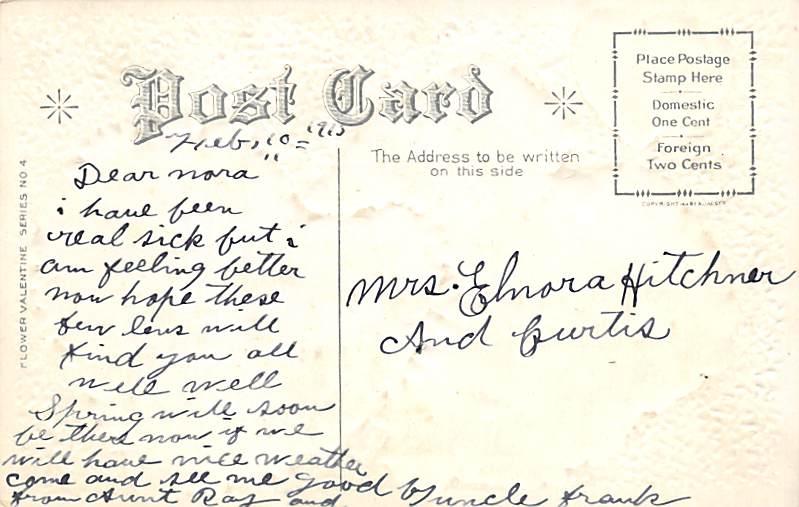 Post Card
Place Postage
Stamp Here
Domestic
One Cent
Foreign
Two Cents
The Address to be written
on this side
FLOWER VALENTINE SERIES NO 4
Feb, 10 =
Dear nora
i have been
real sick but i
am feeling better
now hope these
few lins will
find you all
well
Spring will soon
be there now if we
will have nice weather
come and see me good by uncle frank
from Aunt Ray and
Mrs. Elnora Hitchner
And Curtis